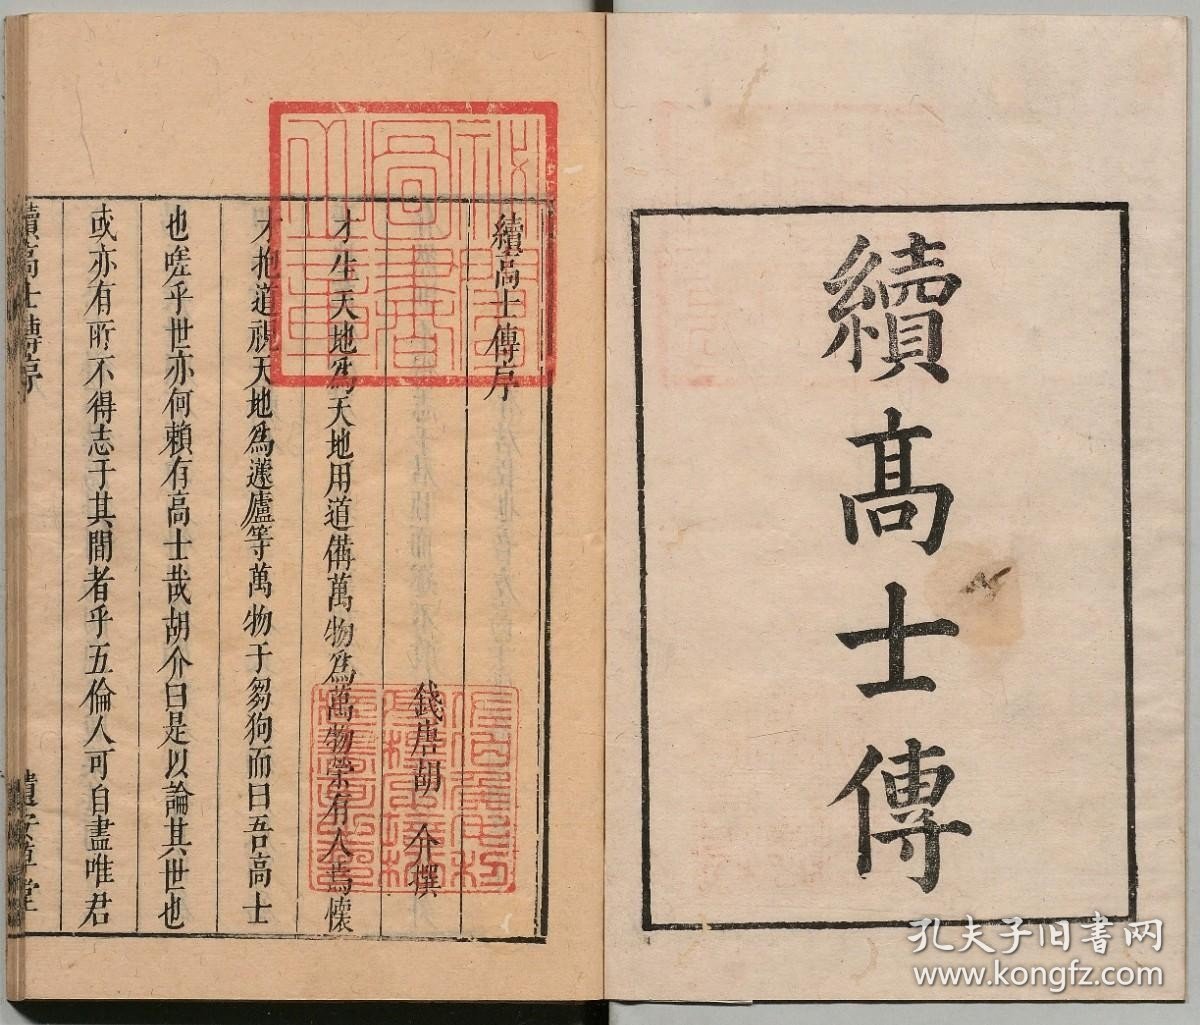 續高士傳
續高士傳序
錢唐胡 介撰
才生天地爲天地用道備萬物爲萬物榮有人焉懷
才抱道視天地爲蘧廬等萬物于芻狗而曰吾高士
也嗟乎世亦何賴有高士哉胡介曰是以論其世也
或亦有所不得志于其間者乎五倫人可自盡唯君
續高士傳序
遺安草堂
祕閣
圖書
之章
佐伯侯毛利
高標字培松
藏書畫之印
孔夫子旧書网
www.kongfz.com